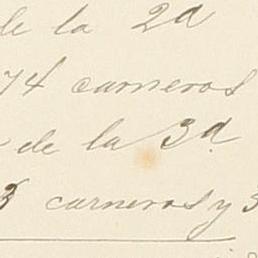 de la 2a
74 carneros
de la 3a
3 carneros y 3